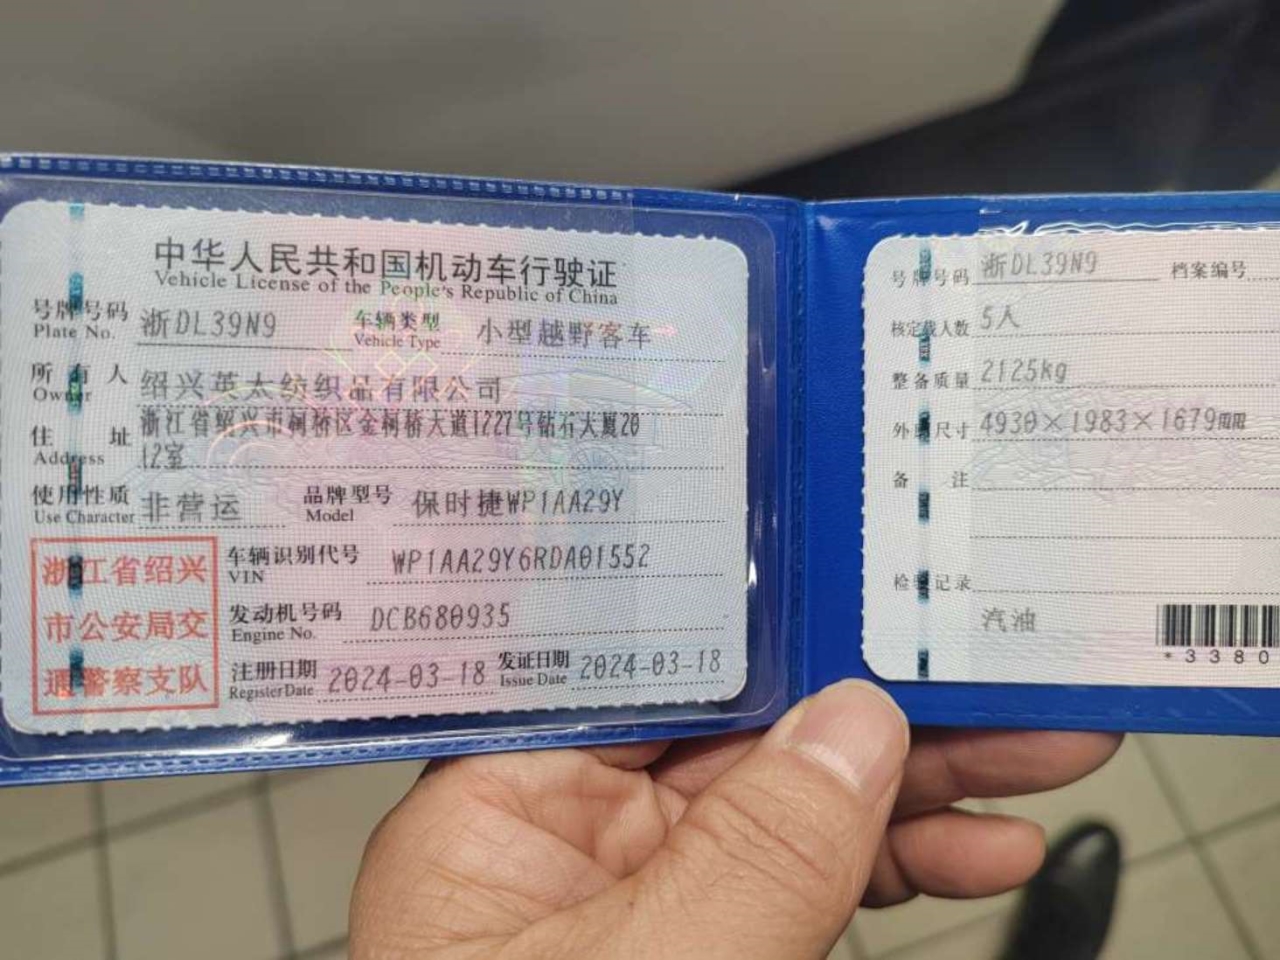 中华人民共和国机动车行驶证
Vehicle License of the People's Republic of China
号牌号码 浙DL39N9 车辆类型 小型越野客车
Plate No. Vehicle Type
所有人 绍兴英太纺织品有限公司
Owner
住址 浙江省绍兴市柯桥区金柯桥大道1227号钻石大厦20
Address 12室
使用性质 非营运 品牌型号 保时捷WP1AA29Y
Use Character Model
浙江省绍兴
市公安局交
通警察支队
车辆识别代号 WP1AA29Y6RDA01552
VIN
发动机号码 DCB680935
Engine No.
注册日期 2024-03-18 发证日期 2024-03-18
Register Date Issue Date
号牌号码 浙DL39N9 档案编号
核定载人数 5人
整备质量 2125kg
外廓尺寸 4930×1983×1679mm
备注
检验记录
汽油
*3380